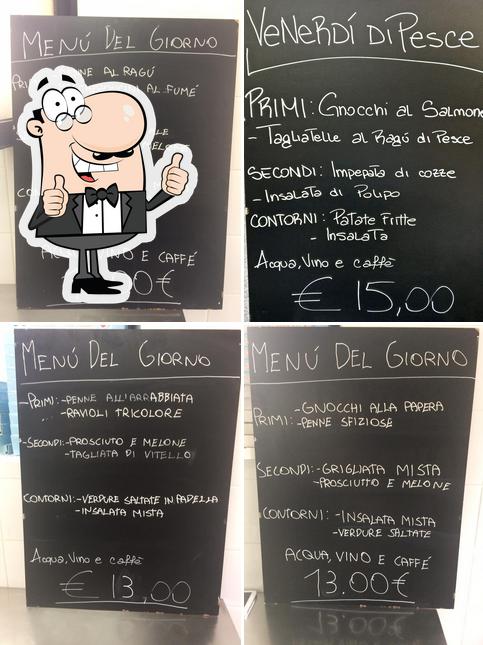 MENÚ DEL GIORNO
PENNE AL RAGÚ
AL FUMÉ
VINO E CAFFÈ
0€
VENERDÍ DI PESCE
PRIMI: GNOCCHI AL SALMONE
- TAGLIATELLE AL RAGÚ DI PESCE
SECONDI: IMPEPATA DI COZZE
- INSALATA DI POLIPO
CONTORNI: PATATE FRITTE
- INSALATA
ACQUA, VINO E CAFFÈ
€ 15,00
MENÚ DEL GIORNO
-PRIMI:-PENNE ALL'ARRABBIATA
-RAVIOLI TRICOLORE
-SECONDI:-PROSCIUTO E MELONE
-TAGLIATA DI VITELLO
CONTORNI:-VERDURE SALTATE IN PADELLA
-INSALATA MISTA
ACQUA, VINO E CAFFÈ
€ 13,00
MENÚ DEL GIORNO
-GNOCCHI ALLA PAPERA
PRIMI:-PENNE SFIZIOSE
SECONDI:-GRIGLIATA MISTA
-PROSCIUTTO E MELONE
CONTORNI:-INSALATA MISTA
-VERDURE SALTATE
ACQUA, VINO E CAFFÉ
13.00€